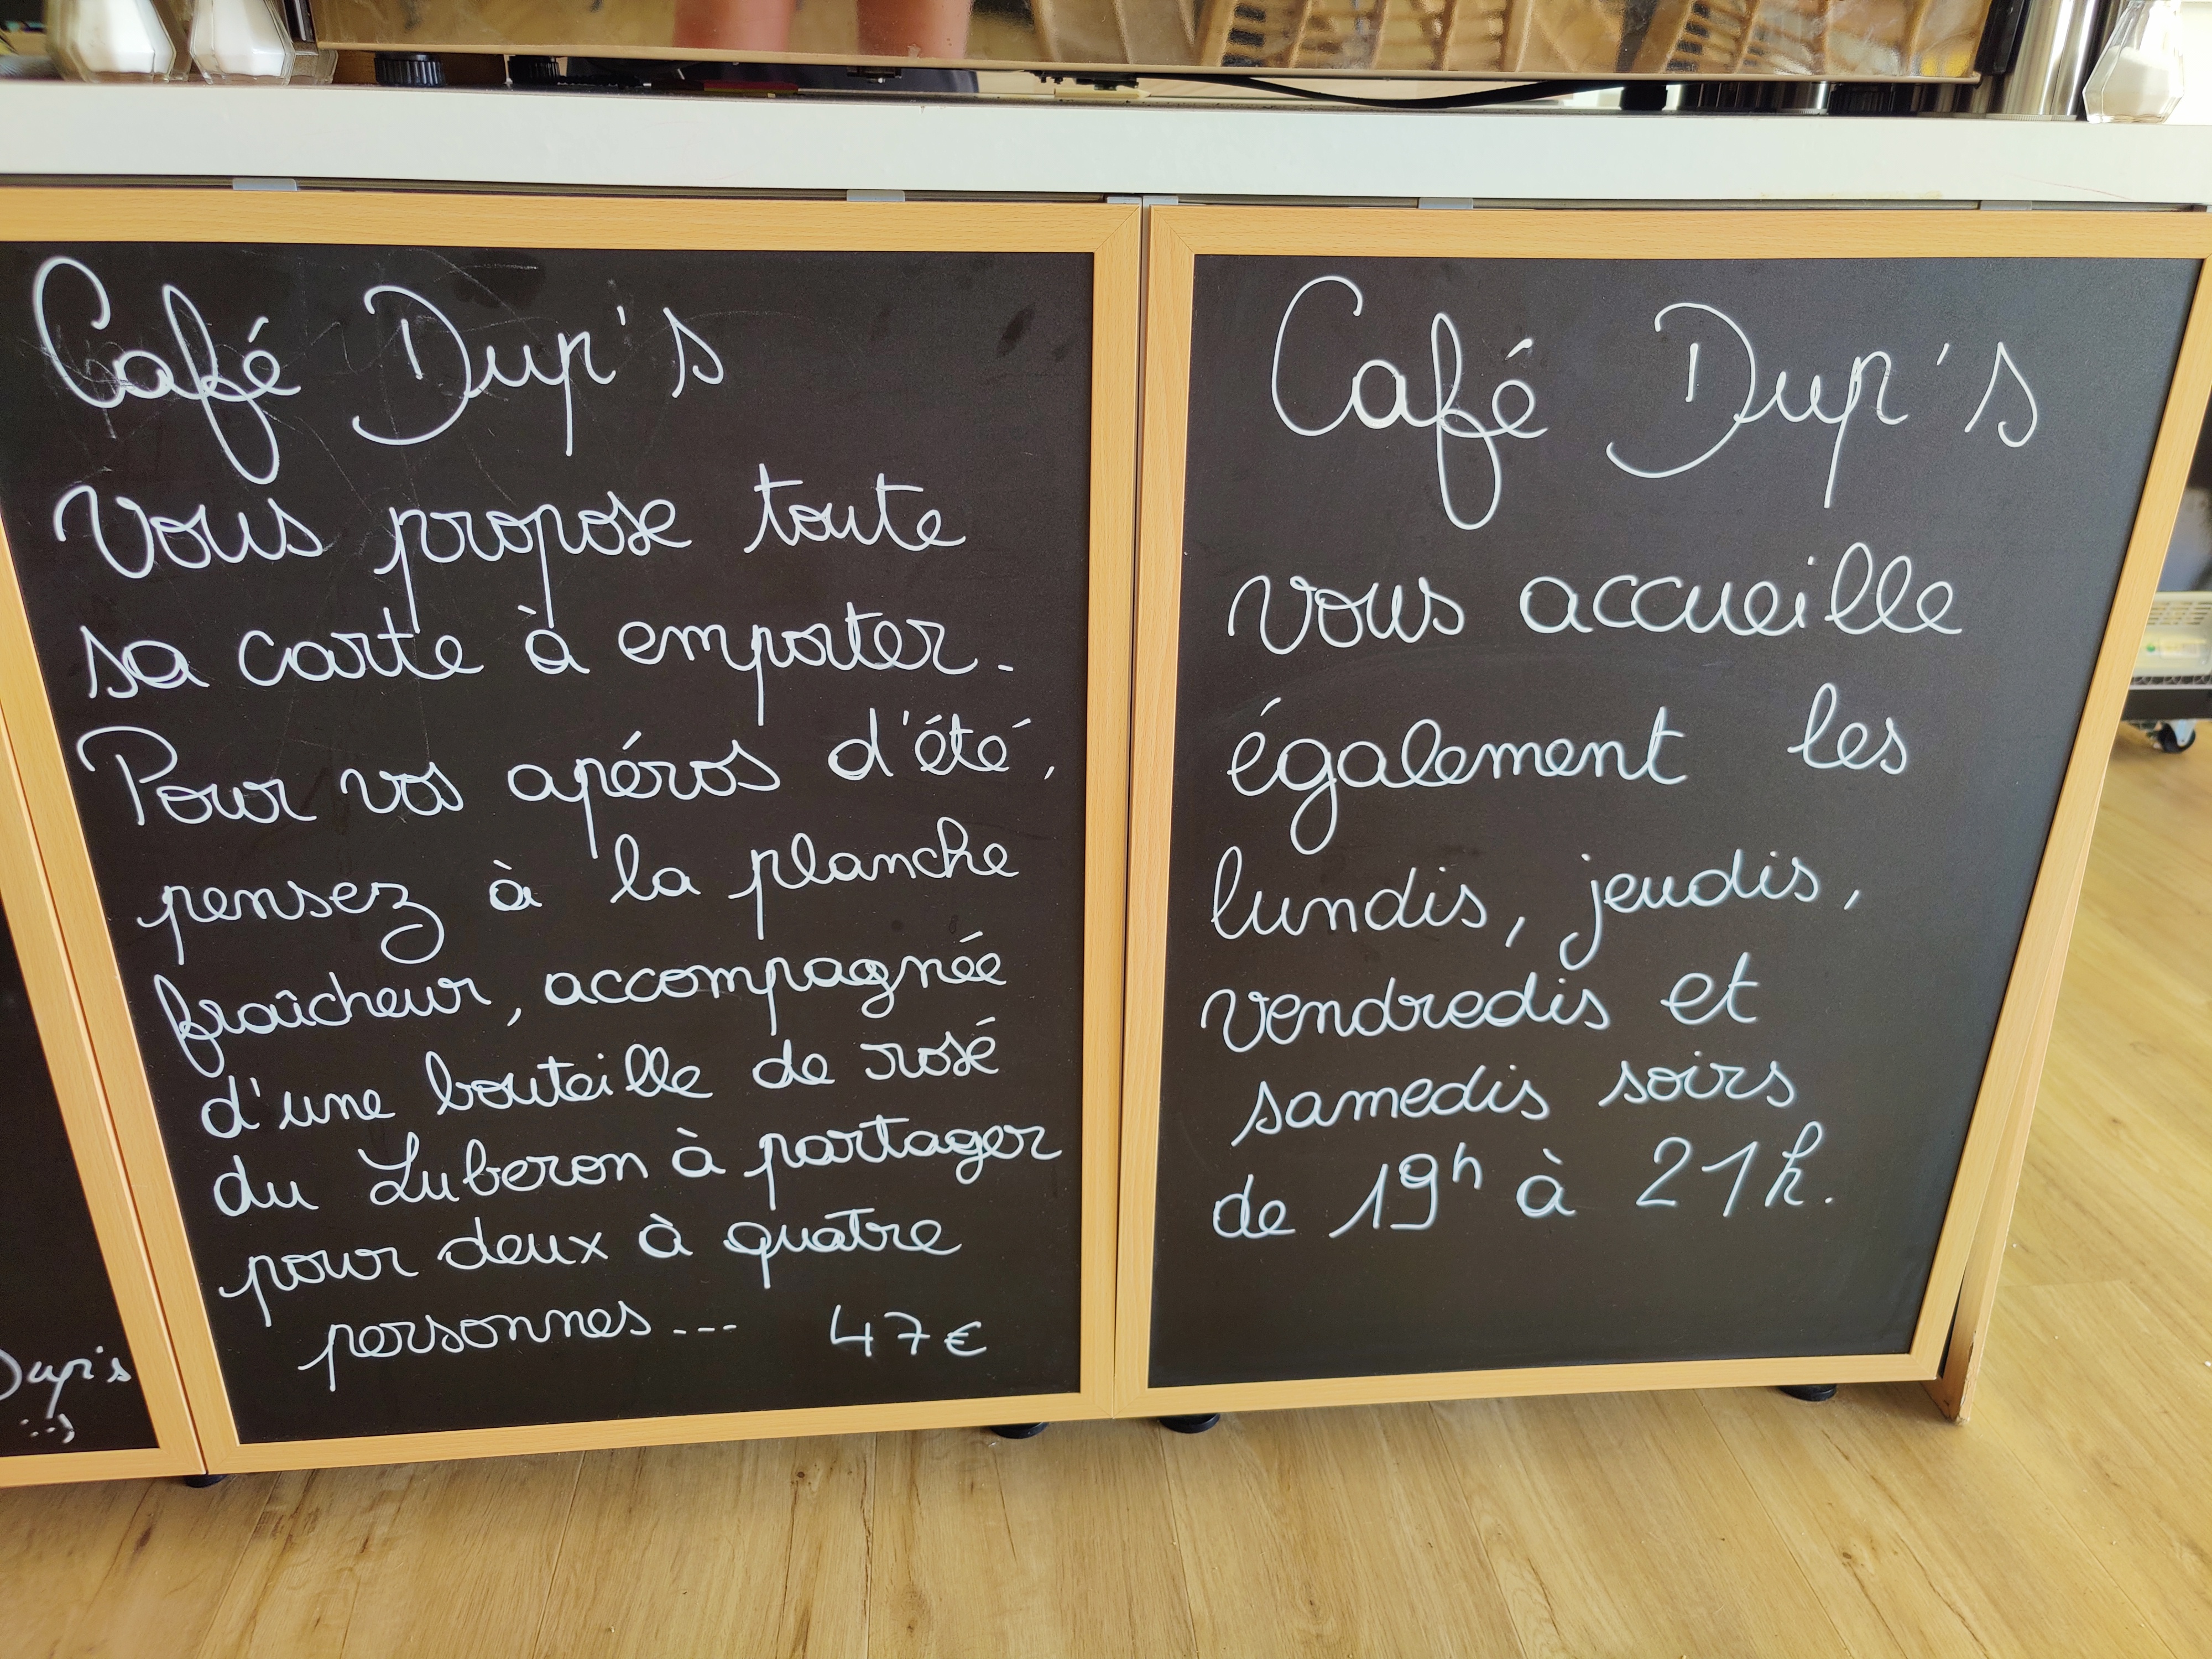 Café Dup's
vous propose toute
sa carte à emporter.
Pour vos apéros d'été,
pensez à la planche
fraîcheur, accompagnée
d'une bouteille de rosé
du Luberon à partager
pour deux à quatre
personnes... 47€
Café Dup's
vous accueille
également les
lundis, jeudis,
vendredis et
samedis soirs
de 19h à 21h.
Dup's
:-)